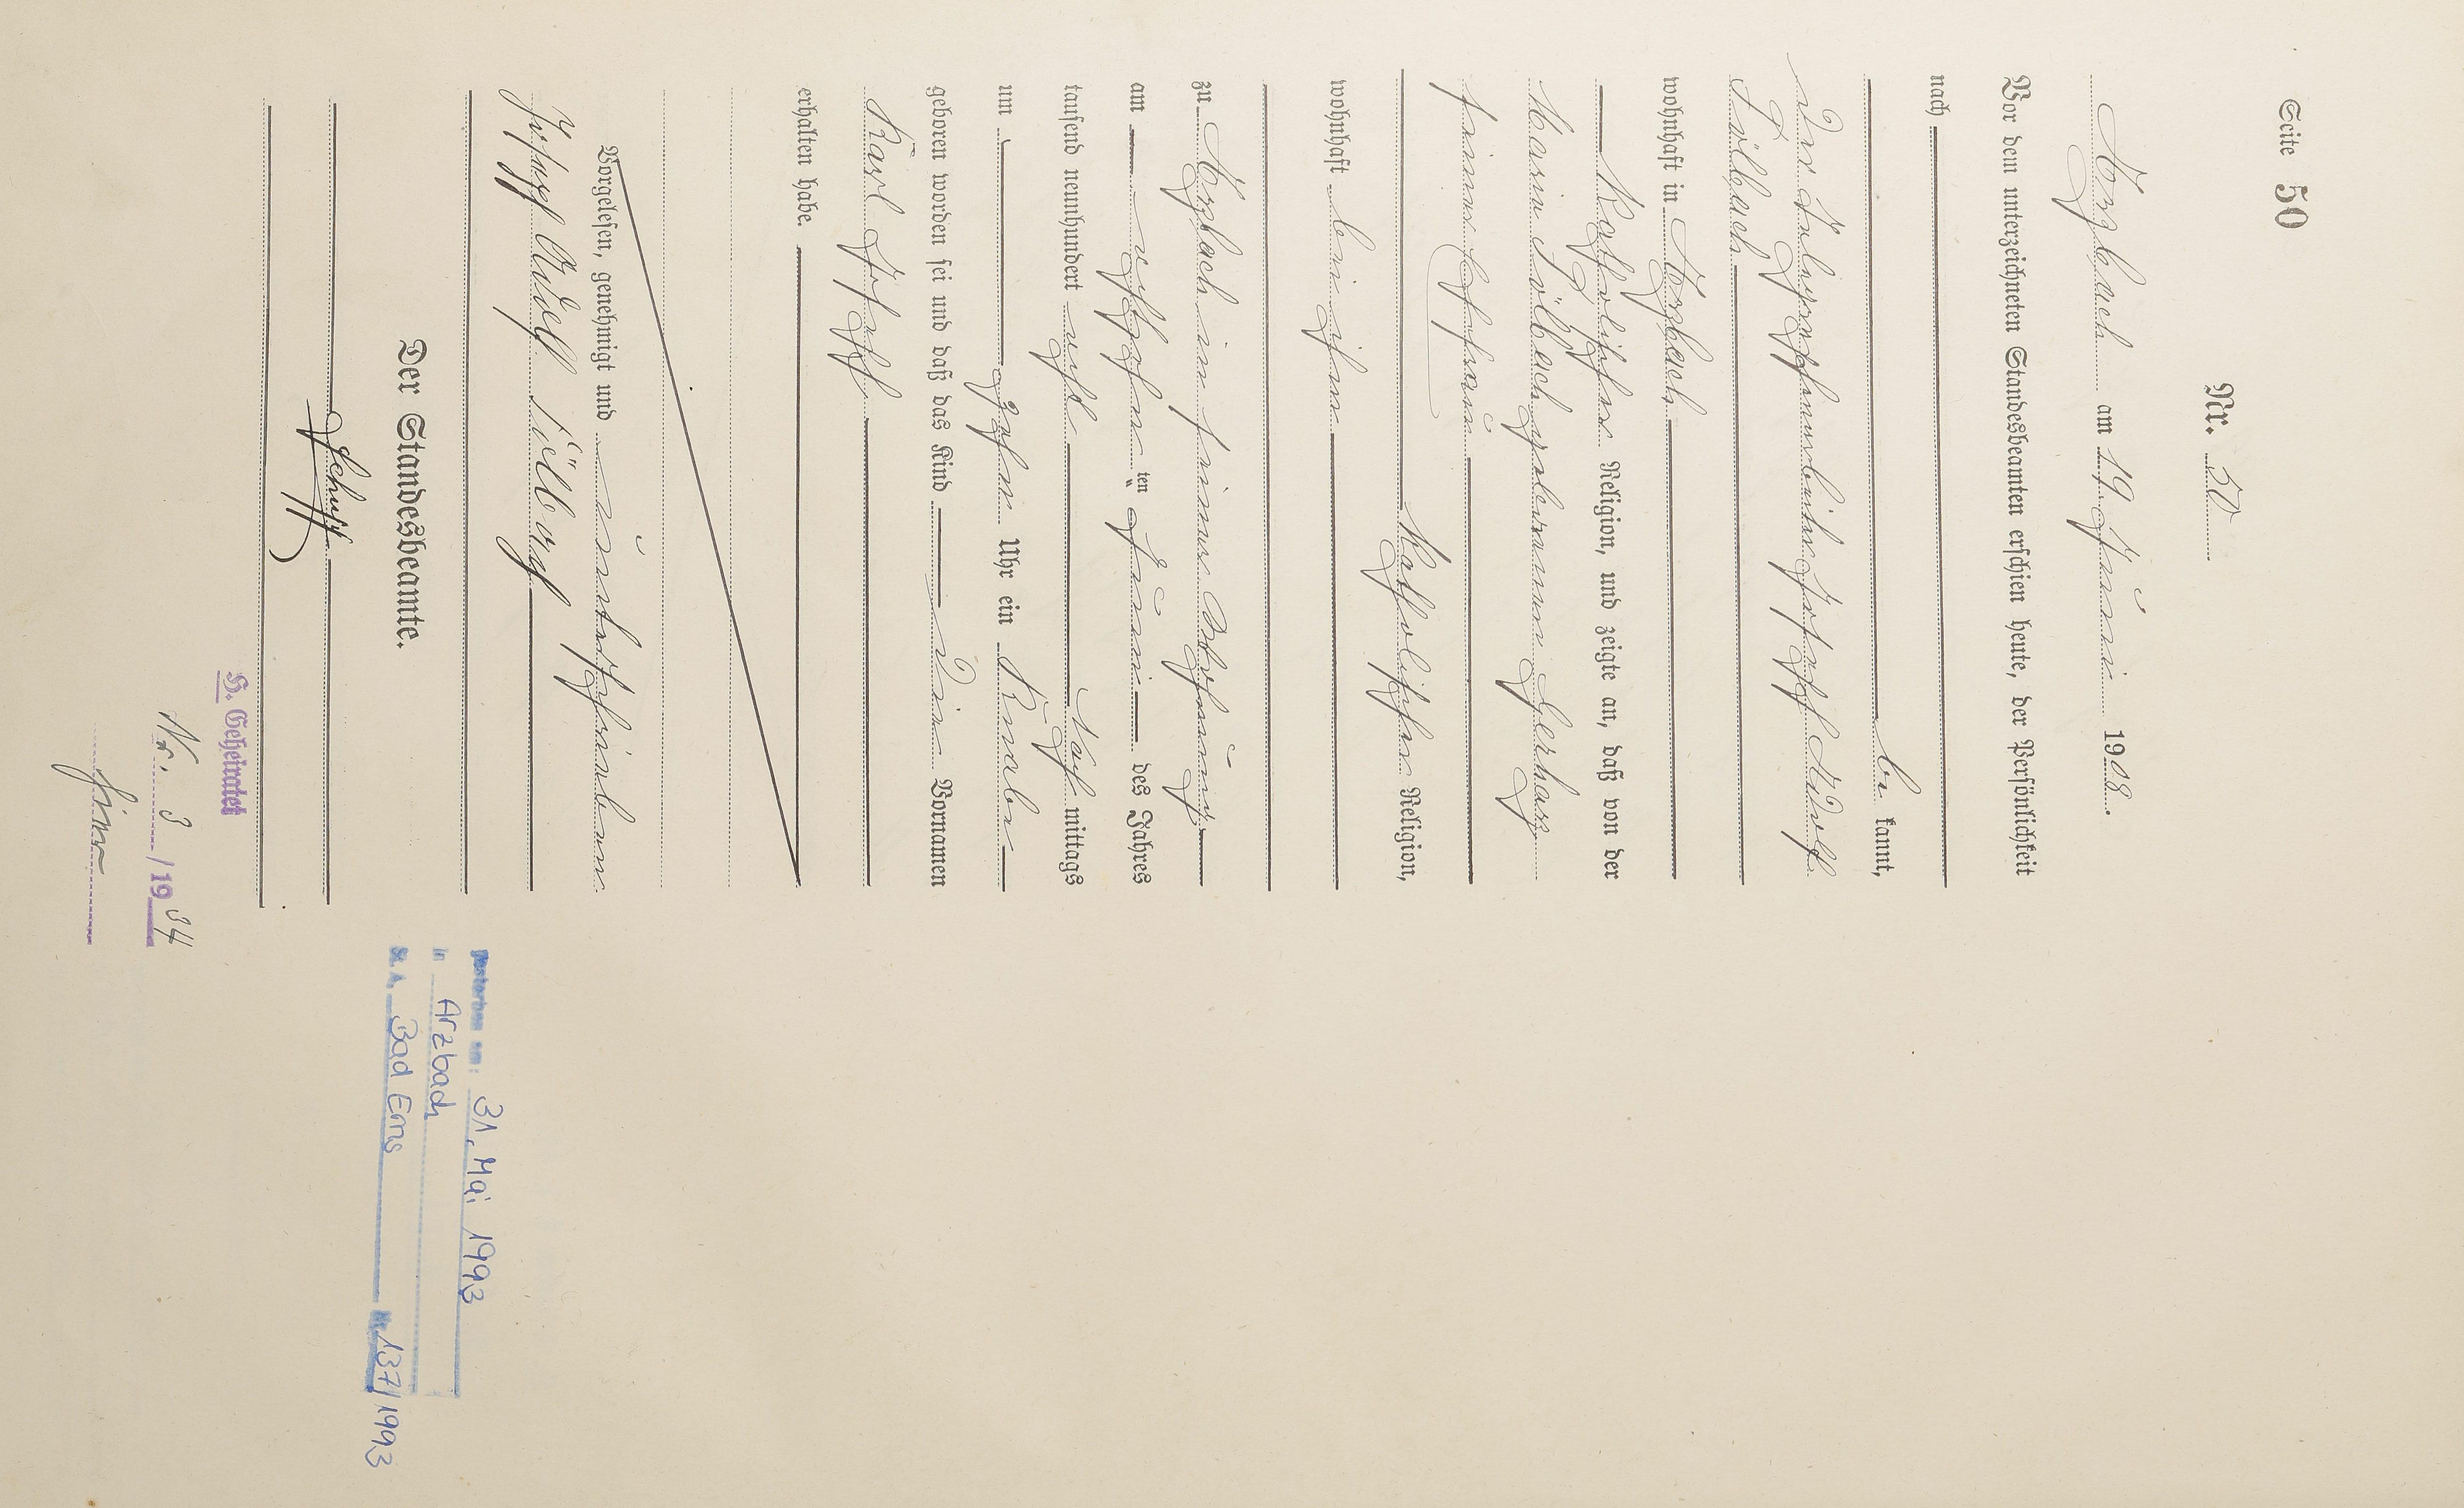 Seite 50
Nr. 50
Arzbach am 19. Juni 1908.
Vor dem unterzeichneten Standesbeamten erschien heute, der Persönlichkeit
nach
be kannt,
Der Joseph Adolf
Söllbach
wohnhaft in Arzbach
Katholischer Religion, und zeigte an, daß von der
Maria Söllbach geborenen Gerharz
seiner Ehefrau
Katholischer Religion,
wohnhaft bei ihm
zu Arzbach in seiner Wohnung
am achtzehn ten Juni des Jahres
tausend neunhundert acht Nach mittags
um zehn Uhr ein Knabe
geboren worden sei und daß das Kind die Vornamen
Karl Joseph
erhalten habe.
Vorgelesen, genehmigt und unterschrieben
Joseph Adolf
Der Standesbeamte.
H. Geheiratet
Nr. 3/1934
hier
Gestorben am: 31. Mai 1993
in Arzbach
St. A. Bad Ems Nr. 137/1993